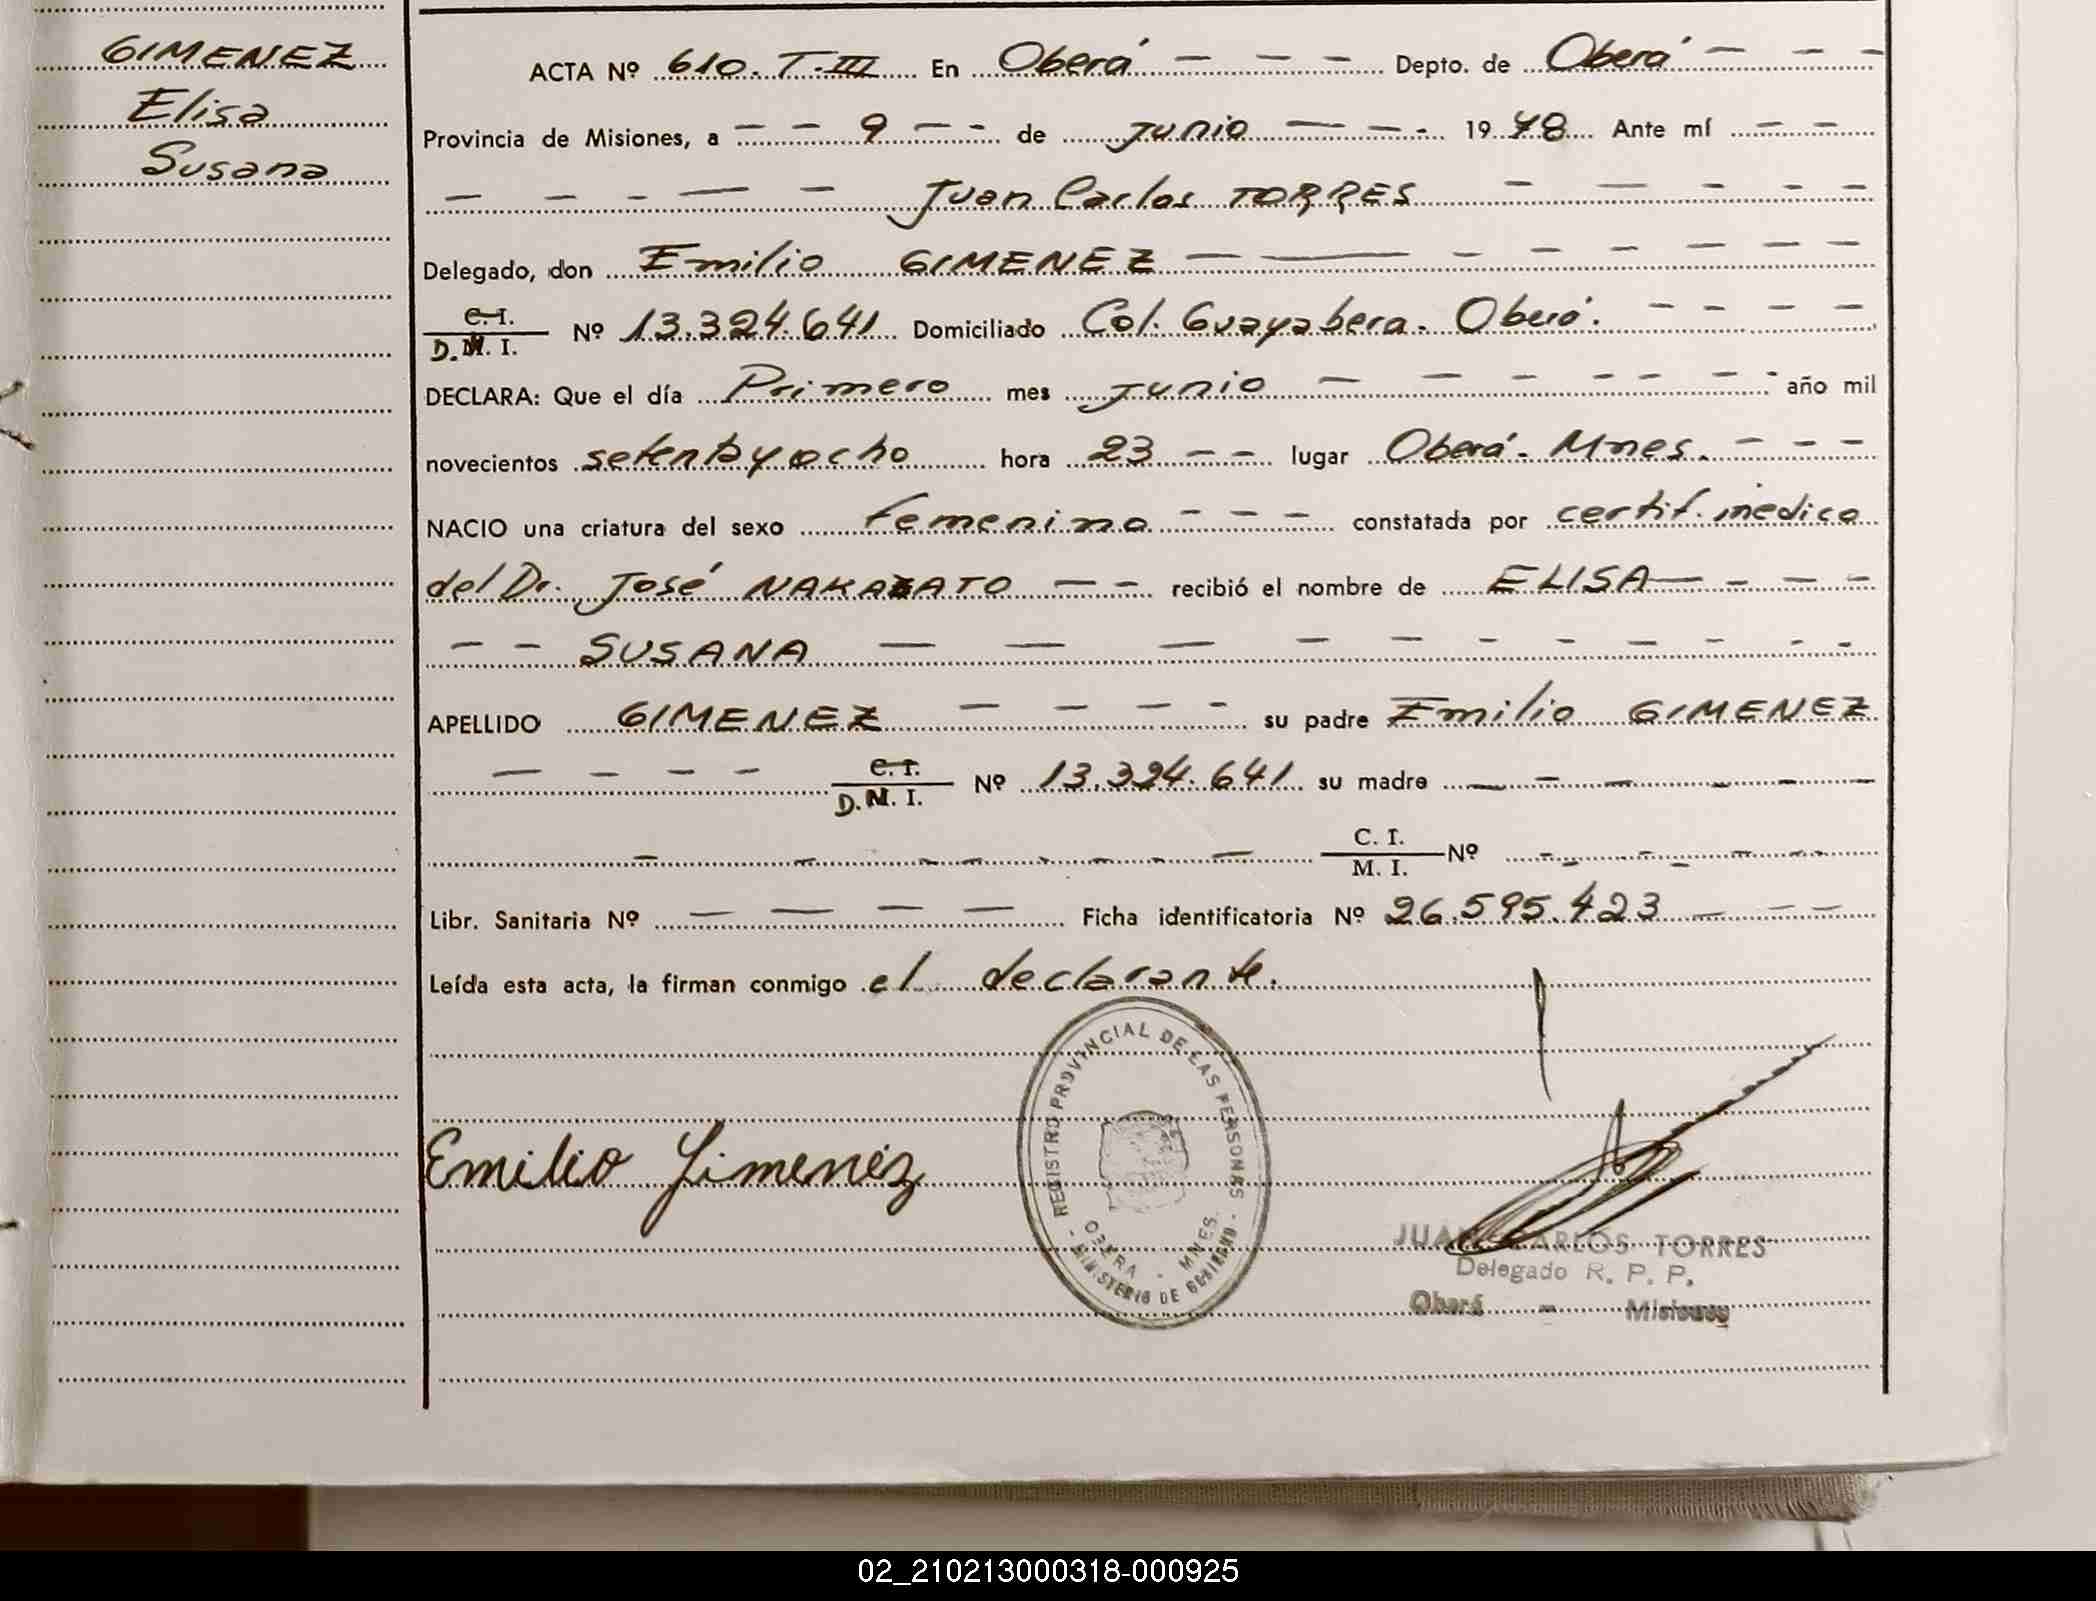 GIMENEZ
Elisa
Susana
ACTA Nº 610. T.III En Oberá - - - Depto. de Oberá - - -
Provincia de Misiones, a - - 9 - - de junio - - - 1978 Ante mí - -
- - - - - Juan Carlos TORRES - - - - -
Delegado, don Emilio GIMENEZ - - - - - - - -
C. I.
D. M. I. Nº 13.324.641 Domiciliado Col. Guayabera. Oberá. - - - -
DECLARA: Que el día Primero mes junio - - - - - - año mil
novecientos setentayocho hora 23 - - lugar Oberá - Mnes. - - -
NACIO una criatura del sexo femenino - - - constatada por certif. médico
del Dr. José NAKAZATO - - recibió el nombre de ELISA - - - -
- - SUSANA - - - - - - - - - -
APELLIDO GIMENEZ - - - - su padre Emilio GIMENEZ
- - - - C. I.
D. M. I. Nº 13.324.641 su madre - - - - - -
- - - - - - - C. I.
M. I. Nº - - - - - -
Libr. Sanitaria Nº - - - - Ficha identificatoria Nº 26.595.423 - - -
Leída esta acta, la firman conmigo el declarante.
Emilio Jimenéz
- REGISTRO PROVINCIAL DE LAS PERSONAS -
OBERA - MNES.
MINISTERIO DE GOBIERNO
JUAN CARLOS TORRES
Delegado R. P. P.
Oberá - Misiones
02_210213000318-000925